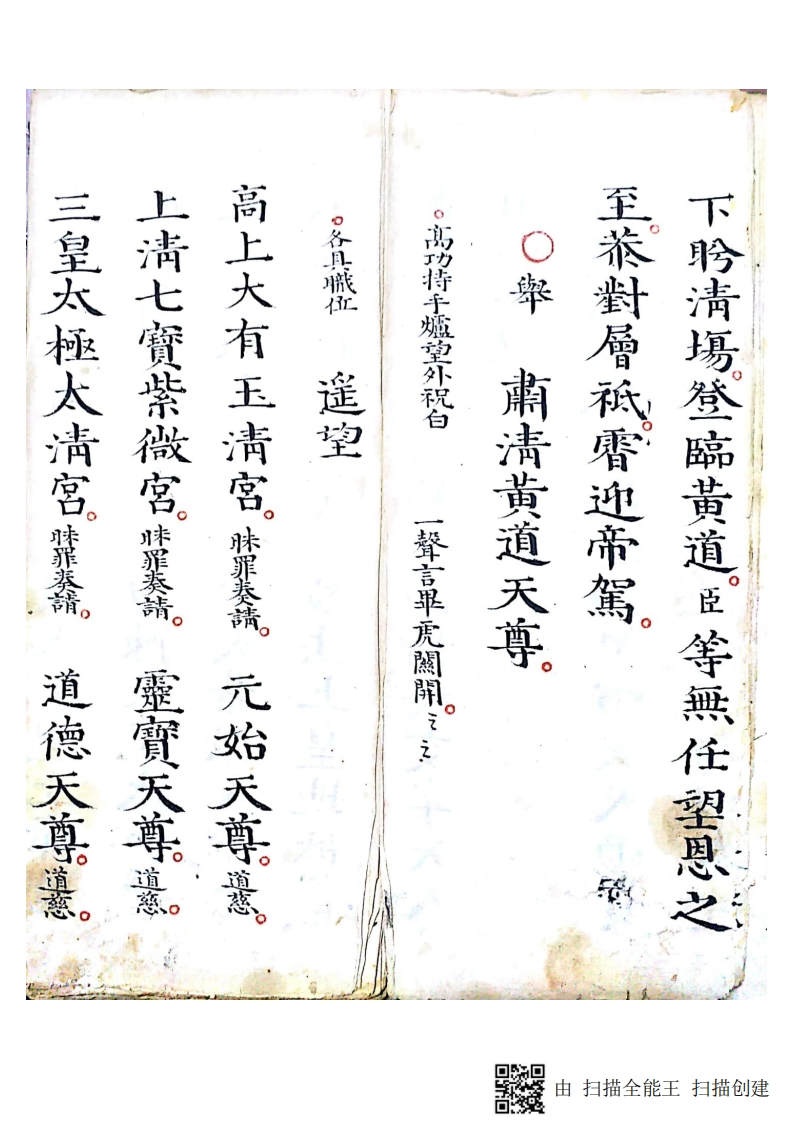 下盻淸塲登臨黃道臣等無任望恩之
至恭對層祇霄迎帝駕
舉 肅淸黃道天尊
高功持手爐望外祝白 一聲言畢虎關開
各具職位 遥望
高上大有玉淸宮昧罪奏請 元始天尊道慈
上淸七寶紫微宮昧罪奏請 靈寶天尊道慈
三皇太極太淸宮昧罪奏請 道德天尊道慈
由 扫描全能王 扫描创建